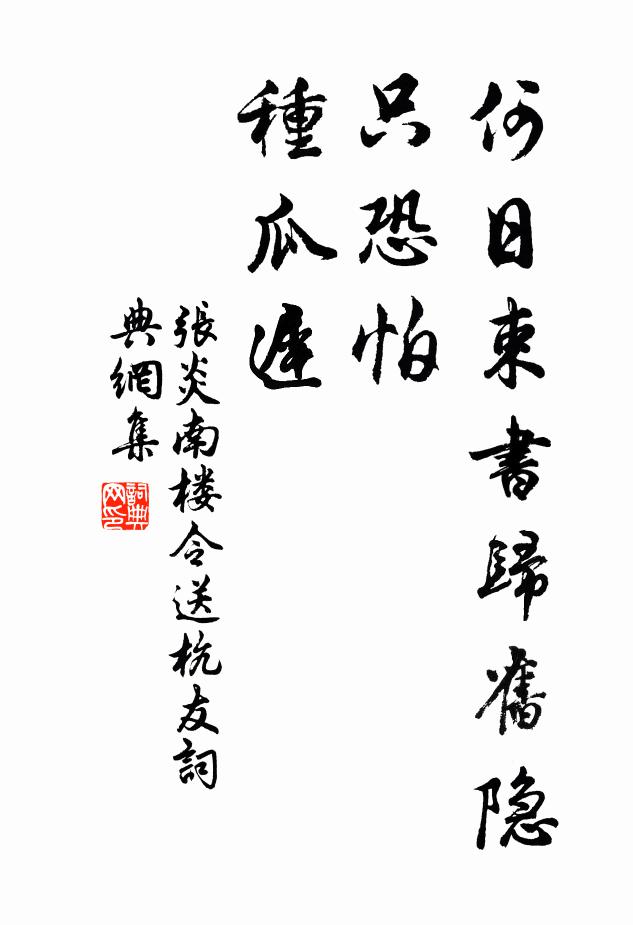 何日束書歸舊隐
只恐怕
種瓜遲
張炎南楼令送杭友詞
典網集
詞典
网印